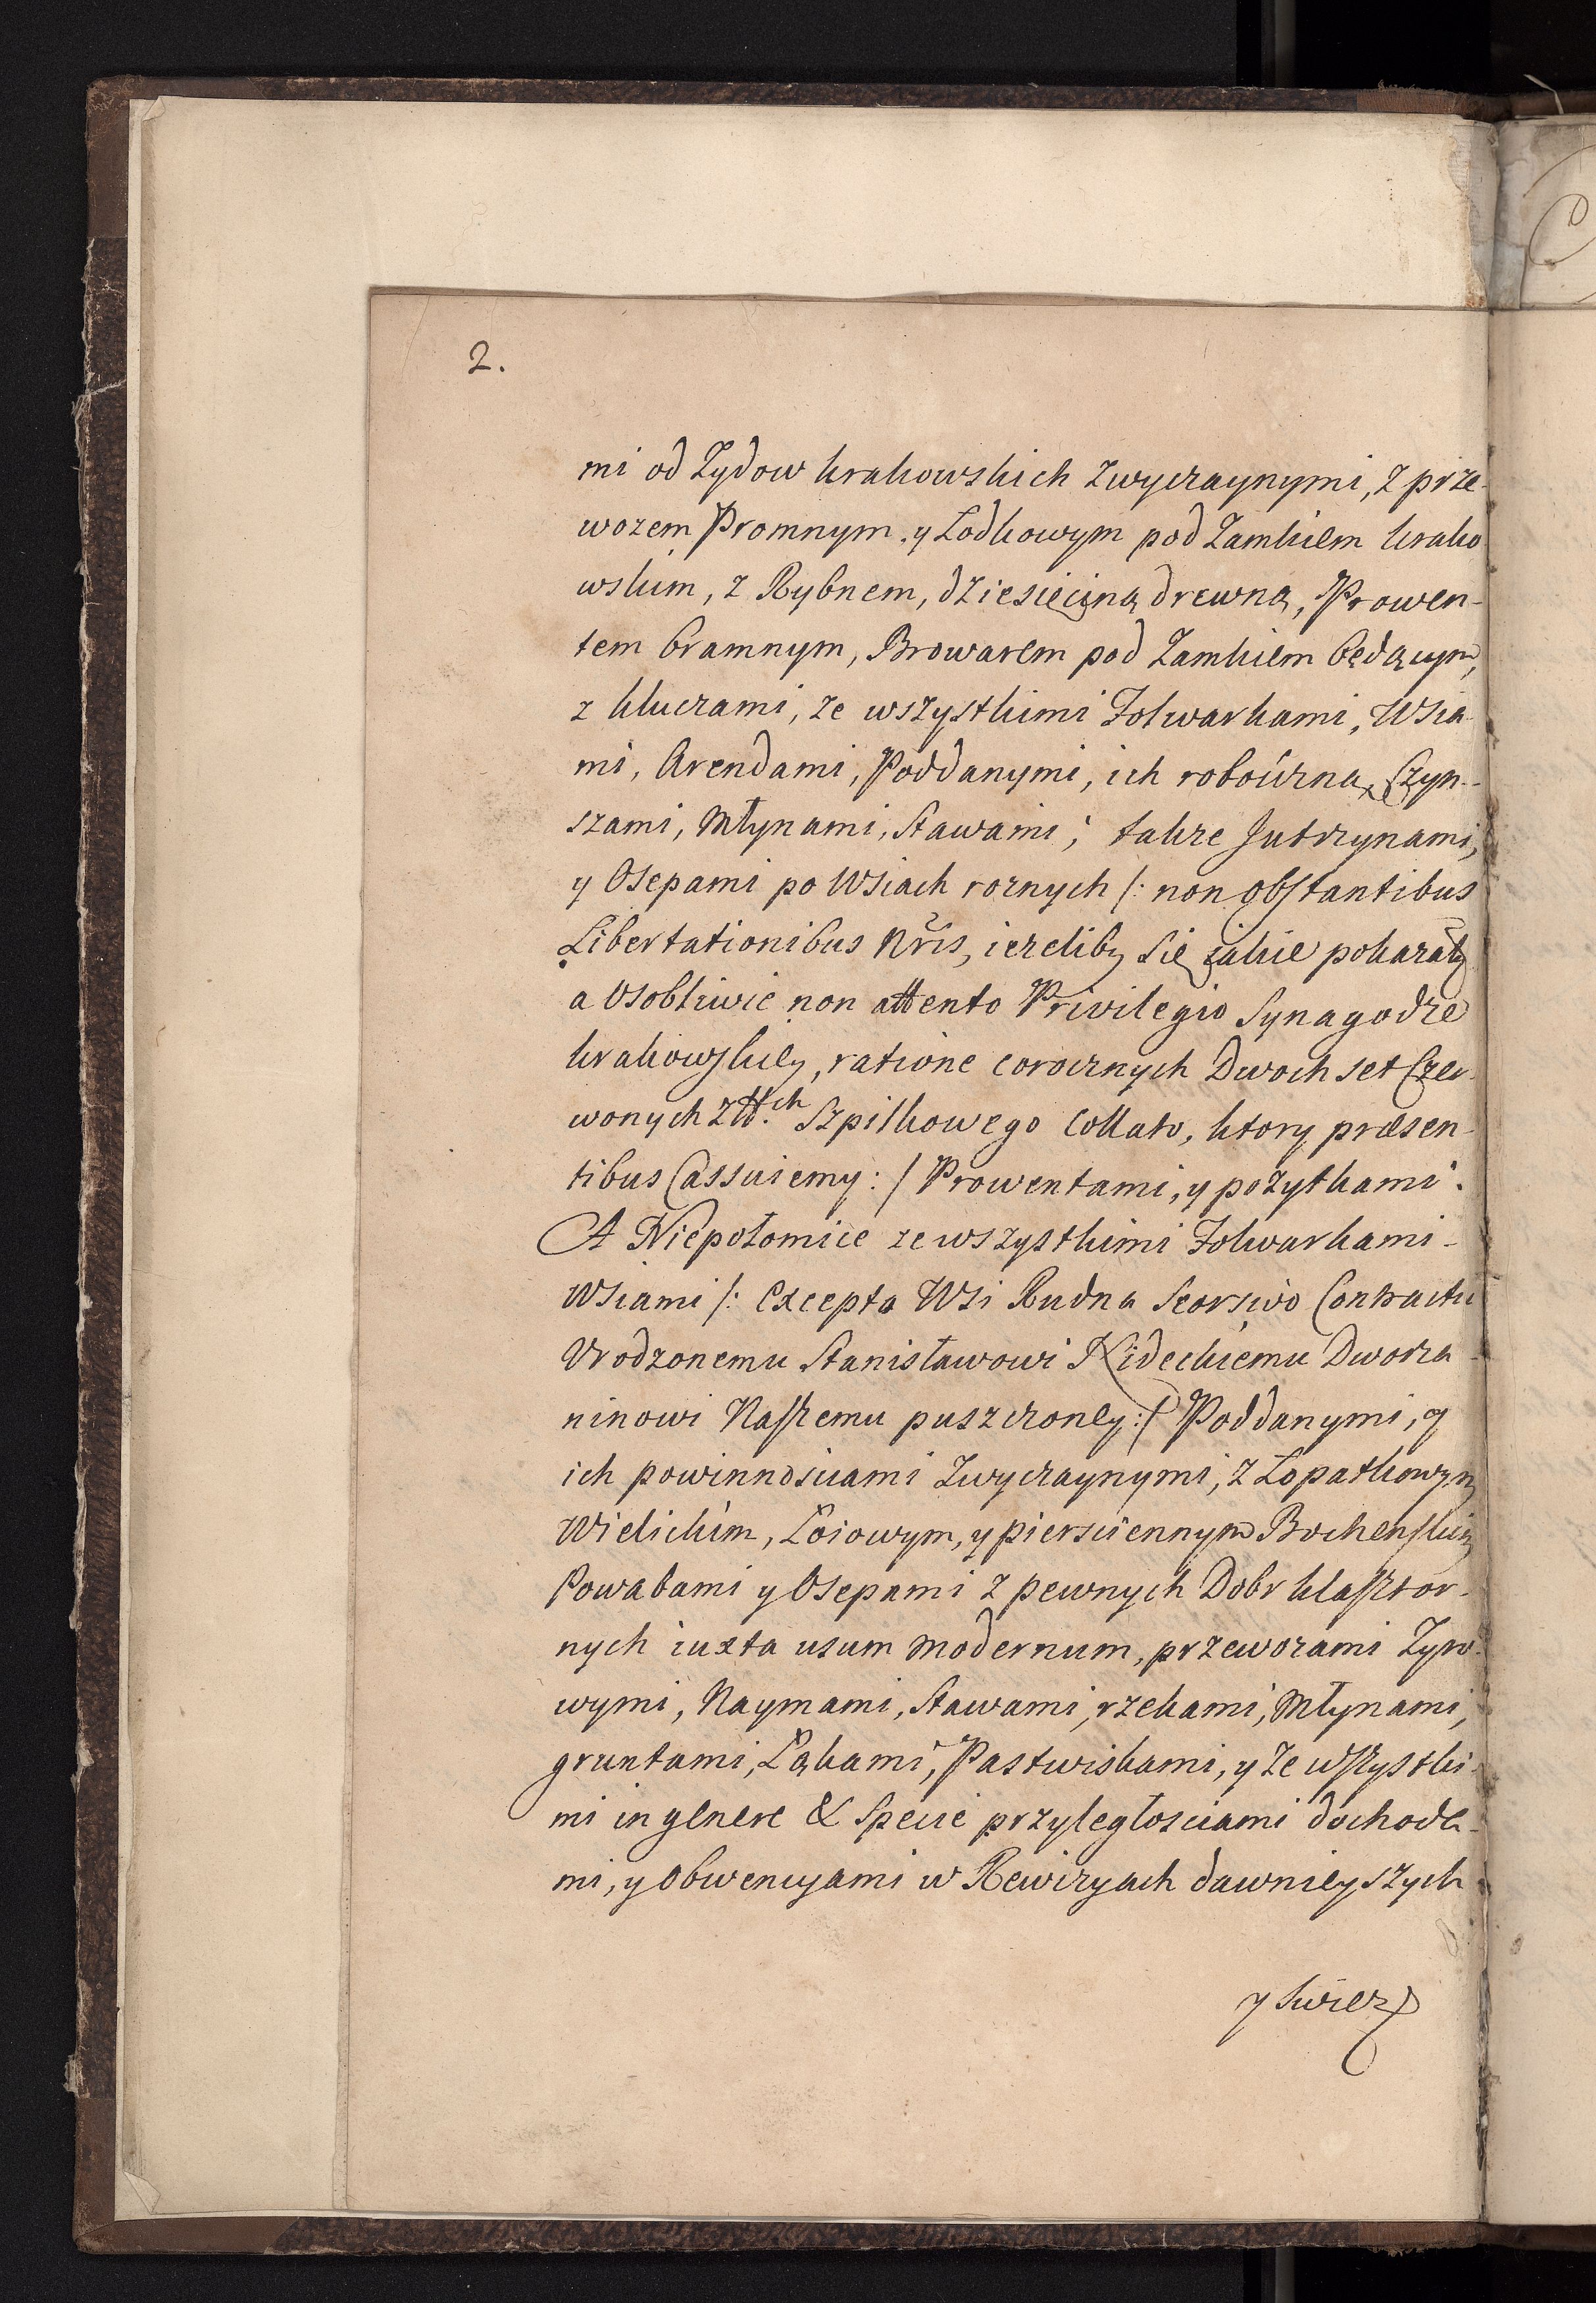 2.
mi od Zydow krakowskich zwyczaynymi, z prze-
wozem Promnym y Lodkowym pod Zamkiem krako
wskim, z Rybnem, dziesięciną drewną, Prowen-
tem bramnym, Browarem pod Zamkiem będącym,
z kluczami, ze wszystkimi Folwarkami, Wsia-
mi, Arendami, Poddanymi, ich robocizną, Czyn-
szami, Młynami, Stawami, także Jutrzynami,
y Osepami po Wsiach roznych /: non obstantibus
Libertationibus Nr̃is, iezeliby się iakie pokazały
a osobliwie non attento Privilegio Synagodze
krakowskiey, ratione corocznych Dwoch set Czer-
wonych Złł.ch Szpilkowego collato, ktory præsen-
tibus Cassuiemy :/ Prowentami, y pozytkami.
A Niepołomice ze wszystkimi Folwarkami -
Wsiami /: excepta Wsi Rudna Seorsivo Contractu
Urodzonemu Stanisławowi Nideckiemu Dworza-
ninowi Naszemu puszczoney :/ Poddanymi, y
ich powinnosciami Zwyczaynymi, z Lopatkowym
Wielickim, Loiowym, y piersciennym Bochenskim
Powabami y Osepami z pewnych Dobr klasztor-
nych iuxta usum modernum, przewozami Zyw-
wymi, Naymami, Stawami, rzekami, Młynami,
gruntami, Ląkami, Pastwiskami, y ze wszystki-
mi in genere & Specie przyległosciami dochoda-
mi, y obwencyami w Rewizyach dawnieyszych
y swiez